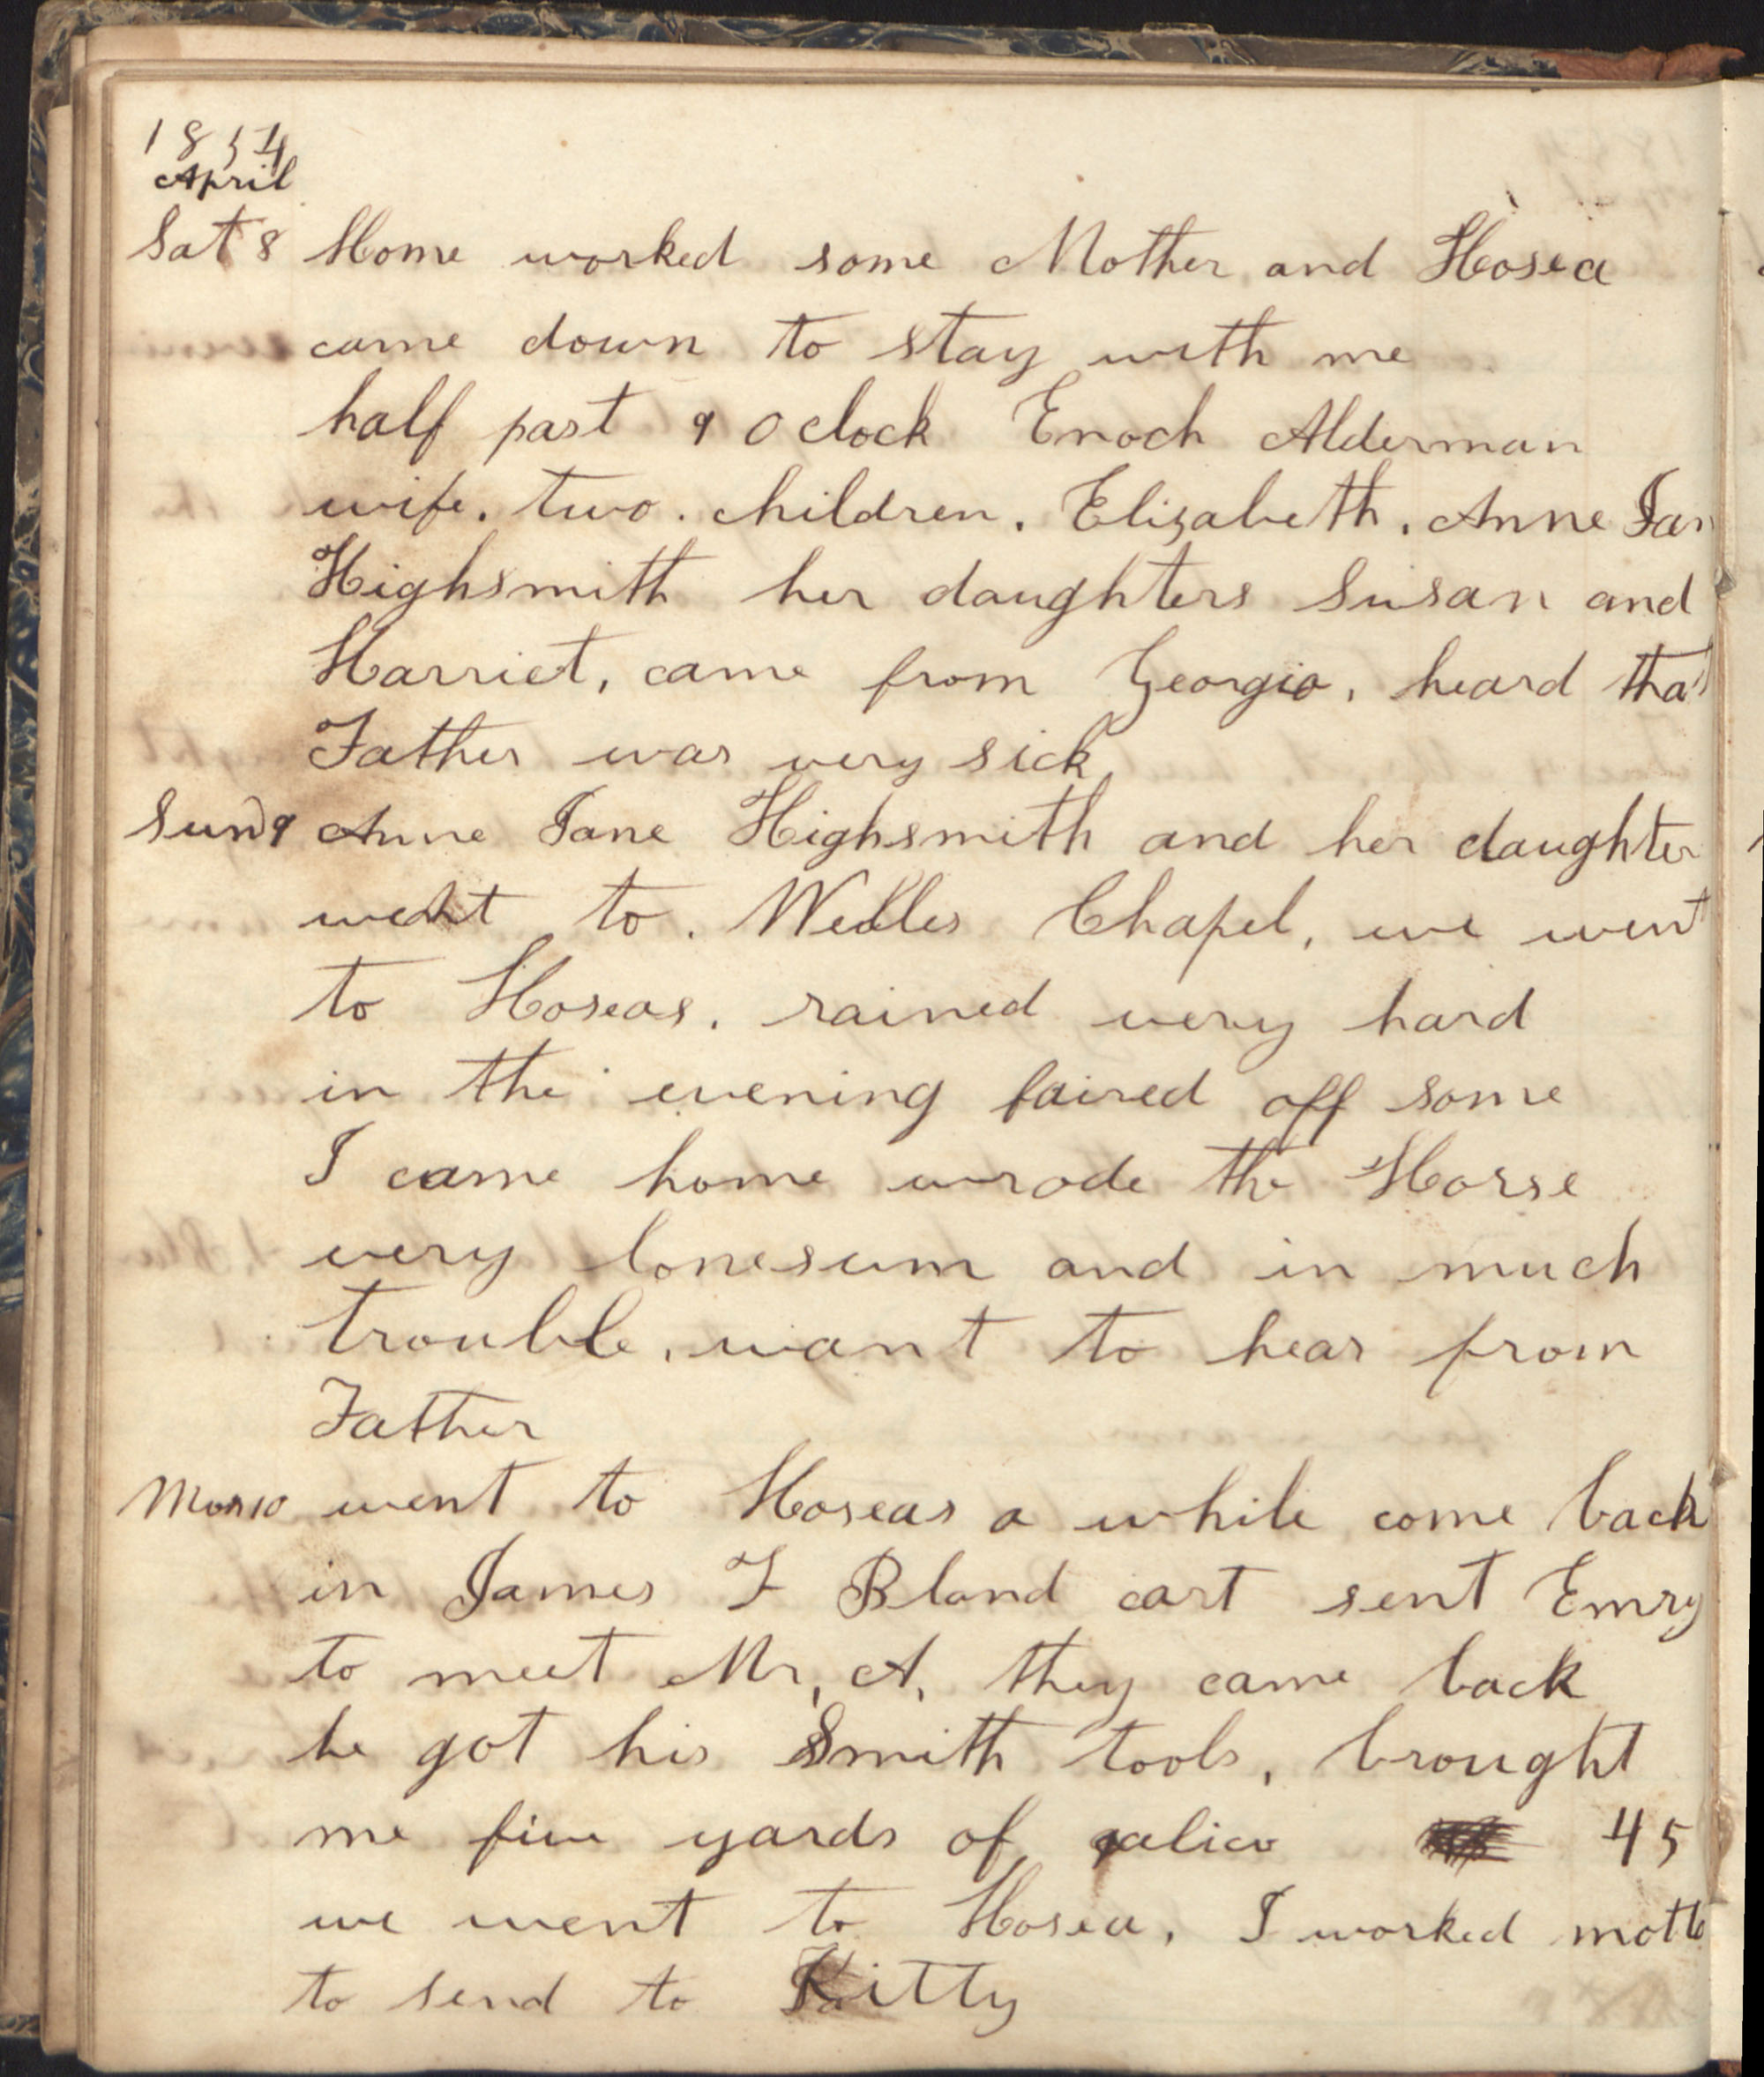 1854
April
Sat 8 Home worked some Mother and Hosea
came down to stay with me
half past 9 O clock Enoch Alderman
wife. two. children. Elizabeth. Anne Jan
Highsmith her daughters Susan and
Harriet, came from Georgia, heard that
Father was very sick
Sund 9 Anne Jane Highsmith and her daughter
went to. Wells Chapel, we went
to Hoseas. rained very hard
in the evening faired off some
I came home wrode the Horse
very lonesum and in much
trouble, want to hear from
Father
Mon 10 went to Hoseas a while come back
in James F Bland cart sent Emry
to meet Mr, A, they came back
he got his Smith tools, brought
me five yards of calico 45
we went to Hosea, I worked
to send to Kitty